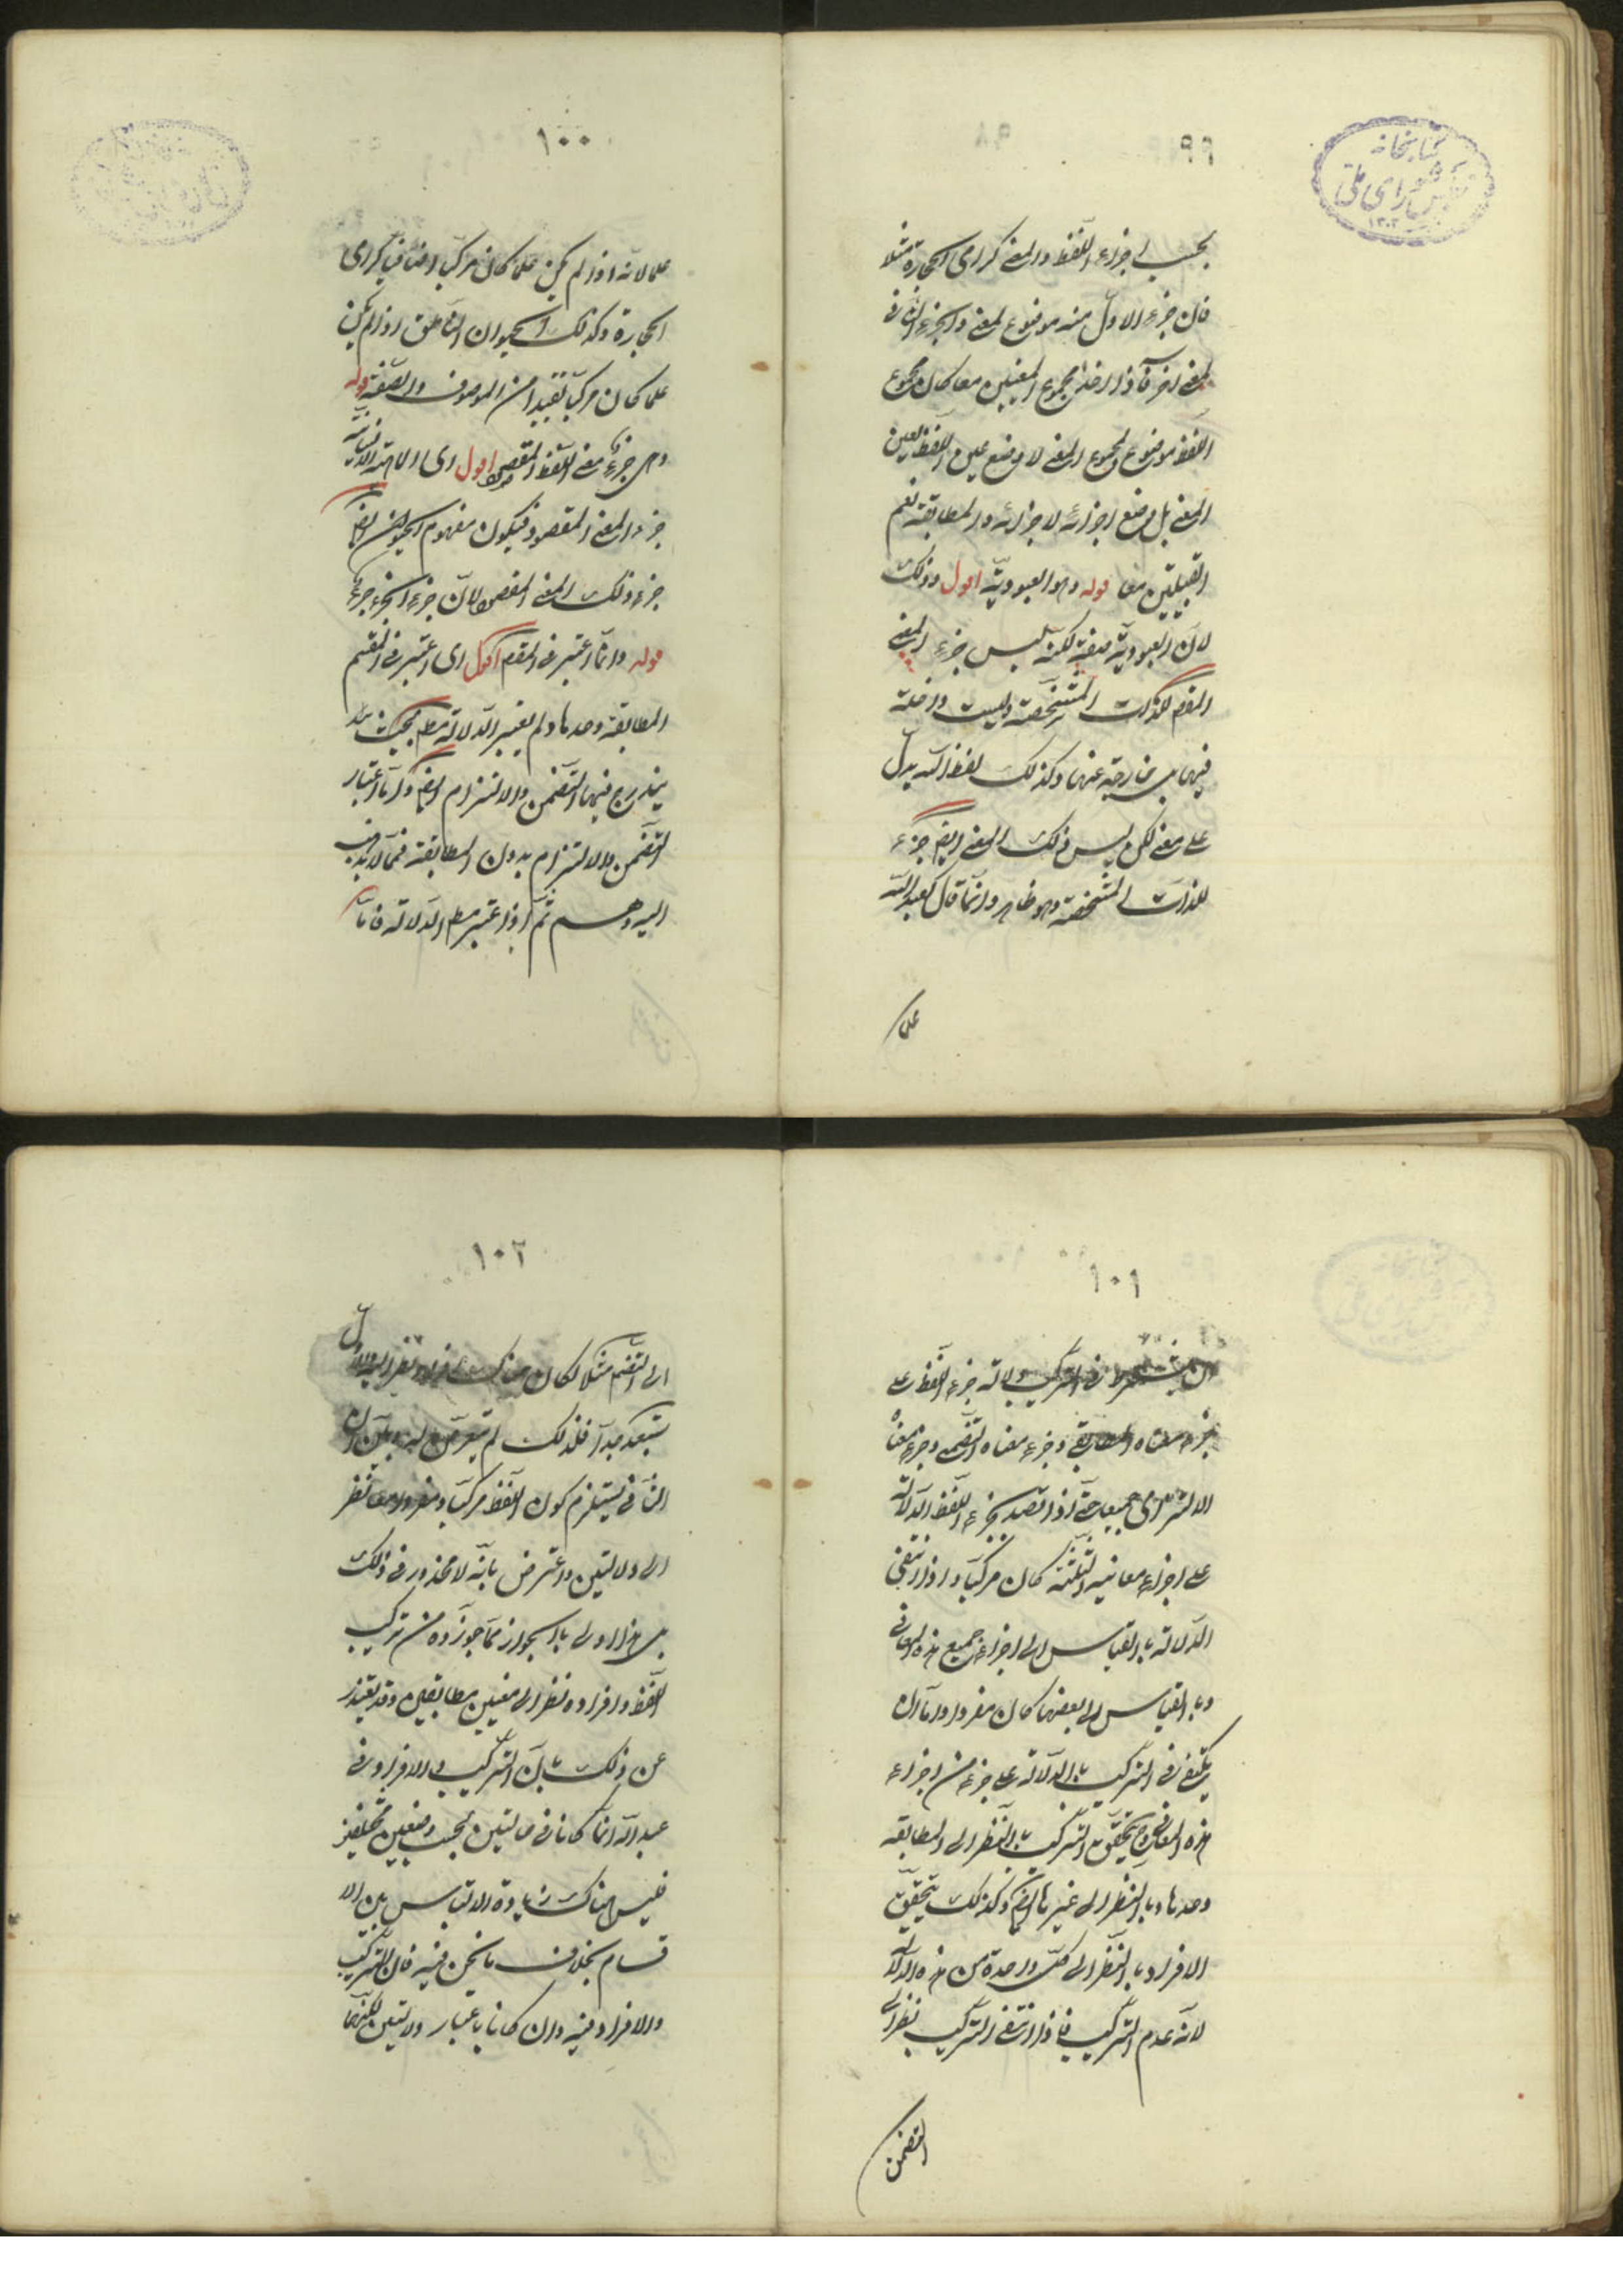 ٩٩
كتابخانه
مجلس شورای ملی
١٣٠٢
بحسب اجزاء اللفظ والمعنى كرامى الحجارة مثلا
فان جزء الاول منه موضوع لمعنى والجزء الثانى
لمعنى اخر فاذا اخذ مجموع المعنيين معا كان مجموع
اللفظ موضوع لمجموع المعنى لا بوضع عين اللفظ لعين
المعنى بل بوضع اجزائه لاجزائه والمطابقة تعم
القبيلتين معا قوله وهو العبودية اقول وذلك
لان العبودية صفة لكنه ليس جزء المعنى
المقصود للذات المتشخصة وليست داخلة
فيها بل خارجة عنها وكذلك لفظ الله يدل
على معنى لكن ليس ذلك المعنى ايضا جزء
للذات المتشخصة وهو ظاهر وانما قال كعبد الله
علما
١٠٠
علما لانه اذا لم يكن علما كان مركبا اضافيا كرامى
الحجارة وكذلك الحيوان الناطق اذا لم يكن
علما كان مركبا تقييدا من الموصوف والصفة قوله
وهى جزء معنى اللفظ المقصود اقول اى الماهية الانسانية
جزء المعنى المقصود فيكون مفهوم الحيوان ايضا
جزء ذلك المعنى المقصود لان جزء الجزء جزء
قوله وانما اعتبر فى المقسم اقول اى اعتبر فى المقسم
المطابقة وحدها ولم يعتبر الدلالة مطلقا بحيث
يندرج فيها التضمن والالتزام ايضا واما اعتبار
التضمن والالتزام بدون المطابقة فمما لا يذهب
اليه وهم ثم اذا اعتبر مطلق الدلالة فاما
١٠١
ان يشترط فى التركيب دلالة جزء اللفظ على
جزء معناه المطابقى وجزء معناه التضمنى وجزء معناه
الالتزامى جميعا حتى اذا قصد بجزء اللفظ الدلالة
على اجزاء معانيه الثلثة كان مركبا واذا انتفى
الدلالة بالقياس الى اجزاء جميع هذه المعانى
وبالقياس الى بعضها كان مفردا واما ان
يكتفى فى التركيب بالدلالة على جزء من اجزاء
هذه المعانى وح يتحقق التركيب بالنظر الى المطابقة
وحدها وبالنظر الى غيرها ايضا وكذلك يتحقق
الافراد بالنظر الى كل واحدة من هذه الدلالات
لانه عدم التركيب فاذا انتفى التركيب نظرا الى
التضمن
١٠٢
الى التضمن مثلا لكان هناك افراد بالنظر اليه والاول
مستبعد جدا فلذلك لم يتعرض له وبين ان
الثانى يستلزم كون اللفظ مركبا ومفردا معا نظر
الى دلالتين واعترض بانه لا محذور فى ذلك
بل هذا اولى بالجواز مما جوزوه من تركيب
اللفظ وافراده نظرا الى معنيين مطابقين وقد يعتذر
عن ذلك بان التركيب والافراد فى
عبد الله انما كانا فى حالتين بحسب وضعين مختلفين
فليس هناك زيادة الالتباس بين الا
قسام بخلاف ما نحن فيه فان التركيب
والافراد فيه وان كانا باعتبار دلالتين لكنهما